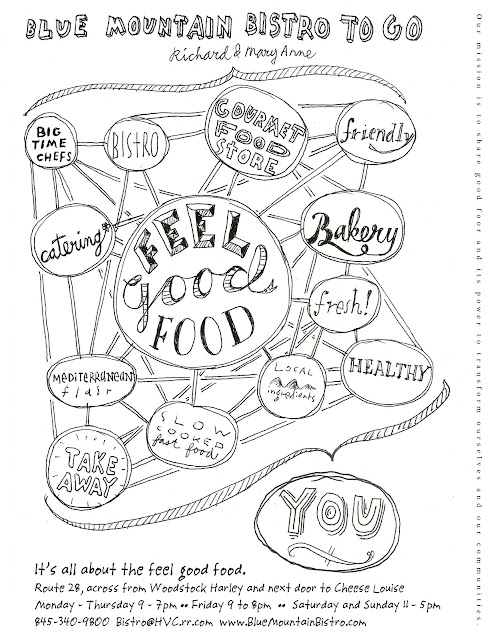 BLUE MOUNTAIN BISTRO TO GO
Richard & Mary Anne
BIG
TIME
CHEFS
BISTRO
GOURMET
FOOD
STORE
friendly
catering
FEEL
good
FOOD
Bakery
fresh!
MEDITERRANEAN
flair
LOCAL
ingredients
HEALTHY
SLOW
COOKED
fast food
TAKE
AWAY
YOU
It's all about the feel good food.
Route 28, across from Woodstock Harley and next door to Cheese Louise
Monday - Thursday 9 - 7pm •• Friday 9 to 8pm •• Saturday and Sunday 11 - 5pm
845-340-9800 Bistro@HVC.rr.com www.BlueMountainBistro.com
Our mission is to share good foor and its power to transform ourselves and our communities.